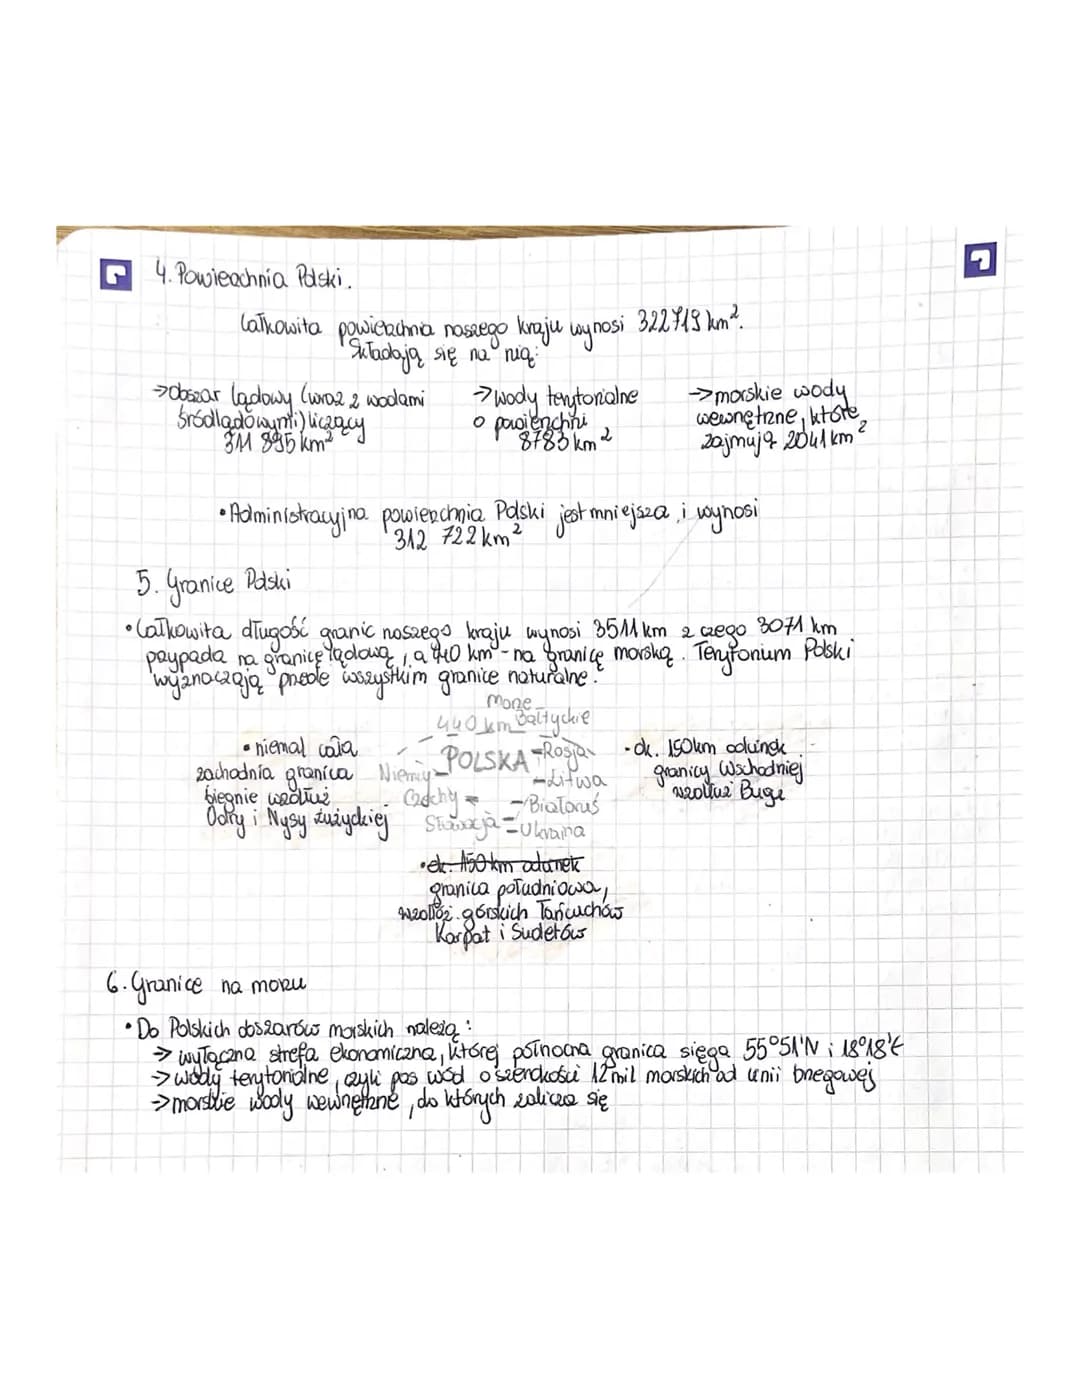 4. Powierzchnia Polski.
Całkowita powierzchnia naszego kraju wynosi 322719 km².
Składają się na nią:
→obszar lądowy (wraz z wodami śródlądowymi) liczący 311 895 km²
→wody terytorialne o powierzchni 8783 km²
→morskie wody wewnętrzne, które zajmują 2041 km²
•Administracyjna powierzchnia Polski jest mniejsza i wynosi
312 722 km²
5. Granice Polski
•Całkowita długość granic naszego kraju wynosi 3511 km z czego 3071 km
przypada na granicę lądową, a 440 km - na granicę morską. Terytorium Polski
wyznaczają przede wszystkim granice naturalne.
Morze
440 km Bałtyckie
•niemal cała
zachodnia granica
biegnie wzdłuż
Odry i Nysy Łużyckiej
POLSKA
Niemcy
Czechy
Słowacja
Rosja
Litwa
Białoruś
Ukraina
•ok. 150km odcinek
granicy Wschodniej
wzdłuż Bugu
•ok. 150 km odcinek
granica południowa,
wzdłóż górskich Łańcuchów
Karpat i Sudetów
6. Granice na morzu
•Do Polskich obszarów morskich należą:
→ wyłączna strefa ekonomiczna, której północna granica sięga 55°51'N i 18°18'E
→wody terytorialne, czyli pas wód o szerokości 12 mil morskich od linii brzegowej
→morskie wody wewnętrzne, do których zalicza się